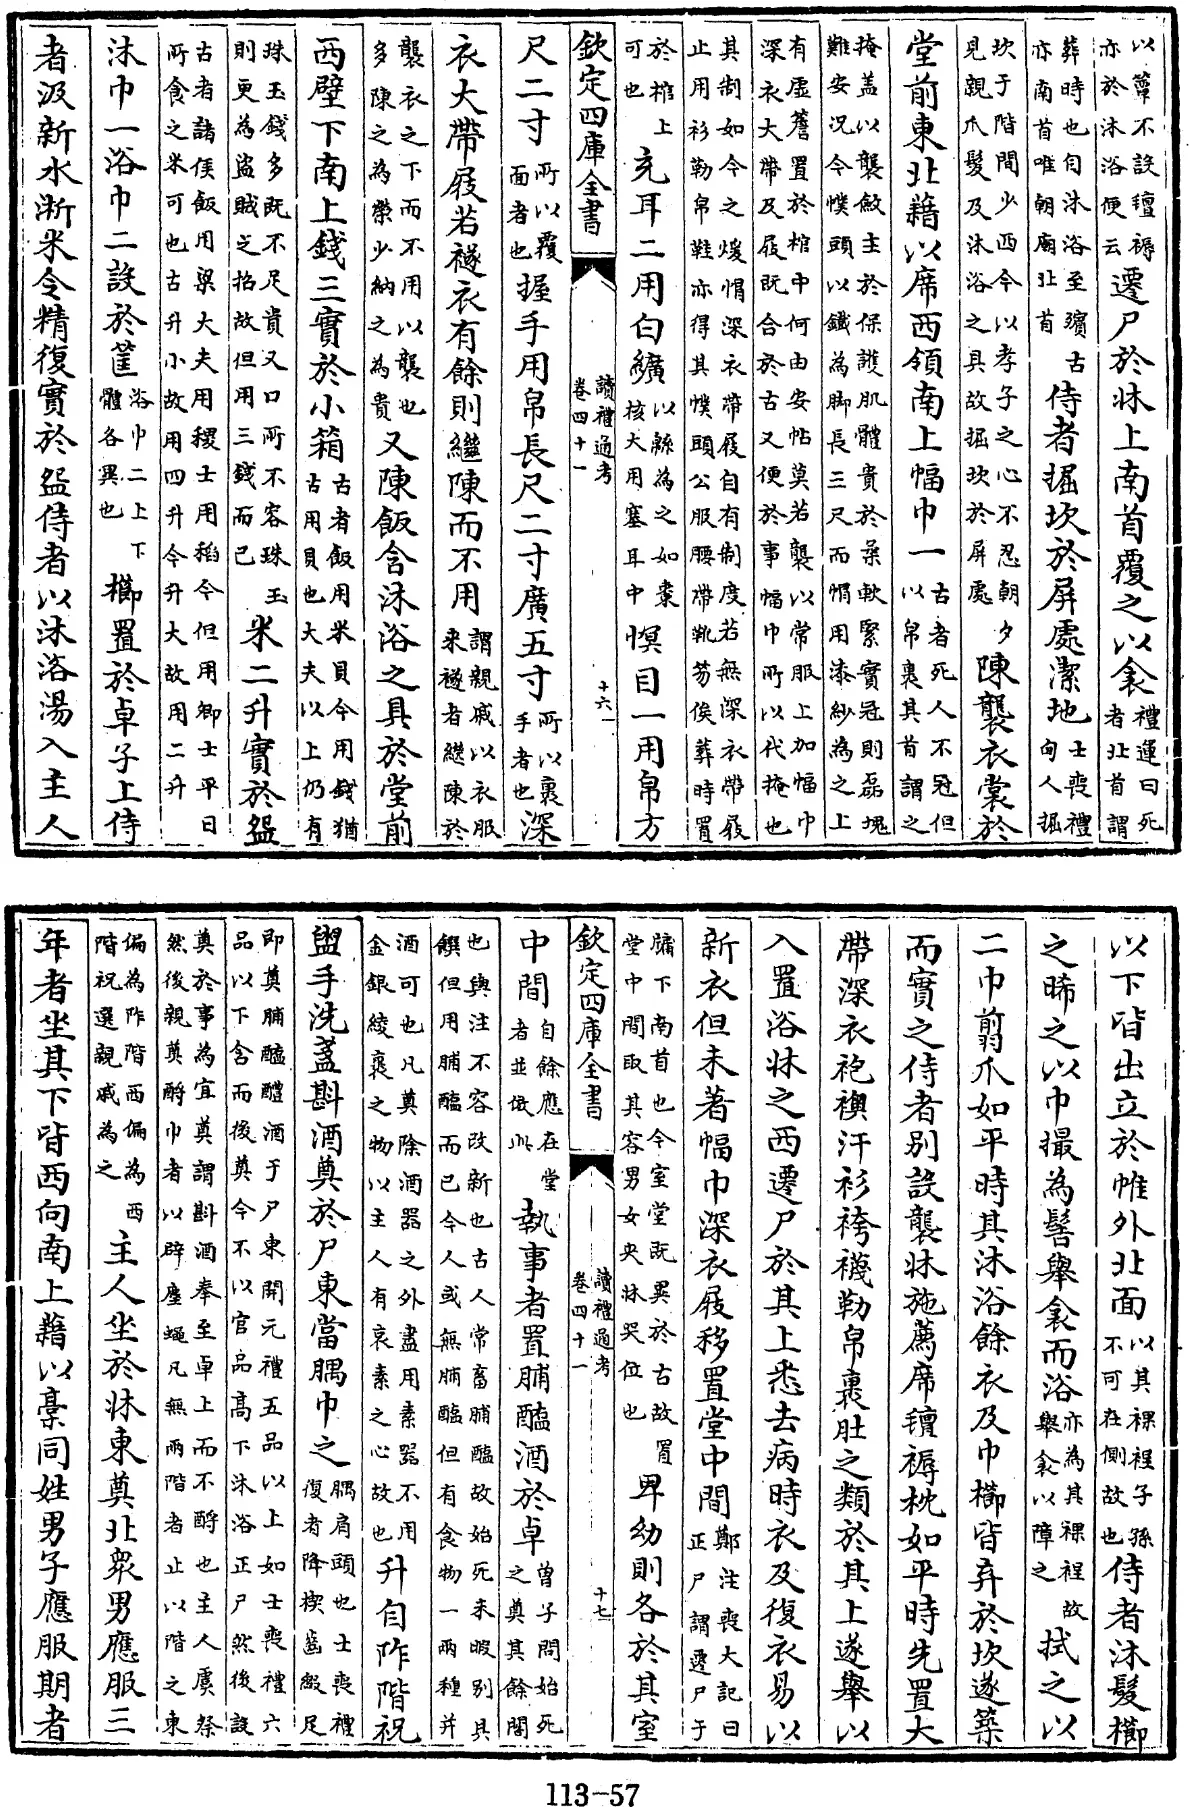 以簟不設氊褥亦於沐浴便云遷尸於牀上南首覆之以衾禮運曰死者北首謂
葬時也自沐浴至殯古亦南首唯朝廟北首侍者掘坎於屏處潔地士喪禮甸人掘
坎于階間少西今以孝子之心不忍朝夕見親爪髮及沐浴之具故掘坎於屏處陳襲衣裳於
堂前東北藉以席西領南上幅巾一古者死人不冠但以帛裹其首謂之
掩盖以襲斂主於保護肌體貴於柔軟緊實冠則磊塊難安況今幞頭以鐵為脚長三尺而帽用漆紗為之上
有虛簷置於棺中何由安帖莫若襲以常服上加幅巾深衣大帶及屐既合於古又便於事幅巾所以代掩也
其制如今之煖帽深衣帶屐自有制度若無深衣帶屐止用衫勒帛鞋亦得其幞頭公服腰帶靴笏俟葬時置
於棺上可也充耳二用白纊以緜為之如棗核大用塞耳中幎目一用帛方
欽定四庫全書 讀禮通考 卷四十一 十六
尺二寸所以覆面者也握手用帛長尺二寸廣五寸所以裹手者也深
衣大帶屐若襚衣有餘則繼陳而不用謂親戚以衣服来襚者繼陳於
襲衣之下而不用以襲也多陳之為榮少納之為貴又陳飯含沐浴之具於堂前
西壁下南上錢三實於小箱古者飯用米貝今用錢猶古用貝也大夫以上仍有
珠玉錢多既不足貴又口所不容珠玉則更為盜賊之招故但用三錢而已米二升實於盌
古者諸侯飯用粱大夫用稷士用稻今但用鄉士平日所食之米可也古升小故用四升今升大故用二升
沐巾一浴巾二設於筐浴巾二上下體各異也櫛置於卓子上侍
者汲新水淅米令精復實於盌侍者以沐浴湯入主人
以下皆出立於帷外北面以其裸裎子孫不可在側故也侍者沐髮櫛
之晞之以巾撮為髻舉衾而浴亦為其裸裎故舉衾以障之拭之以
二巾剪爪如平時其沐浴餘衣及巾櫛皆弃於坎遂築
而實之侍者别設襲牀施薦席氊褥枕如平時先置大
帶深衣袍襖汗衫袴襪勒帛裹肚之類於其上遂舉以
入置浴牀之西遷尸於其上悉去病時衣及復衣易以
新衣但未著幅巾深衣屐移置堂中間鄭注喪大記曰正尸謂遷尸于
牖下南首也今室堂既異於古故置堂中間取其容男女夾牀哭位也卑幼則各於其室
欽定四庫全書 讀禮通考 卷四十一 十七
中間自餘應在堂者並倣此執事者置脯醢酒於卓曾子問始死之奠其餘閣
也與注不容改新也古人常畜脯醢故始死未暇别具饌但用脯醢而已今人或無脯醢但有食物一兩種并
酒可也凡奠除酒器之外盡用素器不用金銀綾裹之物以主人有哀素之心故也升自阼階祝
盥手洗盞斟酒奠於尸東當腢巾之腢肩頭也士喪禮復者降楔齒綴足
即奠脯醢醴酒于尸東開元禮五品以上如士喪禮六品以下含而後奠今不以官品高下沐浴正尸然後設
奠於事為宜奠謂斟酒奉至卓上而不酹也主人虞祭然後親奠酹巾者以辟塵蠅凡無兩階者止以階之東
偏為阼階西偏為西階祝選親戚為之主人坐於牀東奠北衆男應服三
年者坐其下皆西向南上藉以藁同姓男子應服期者
113-57